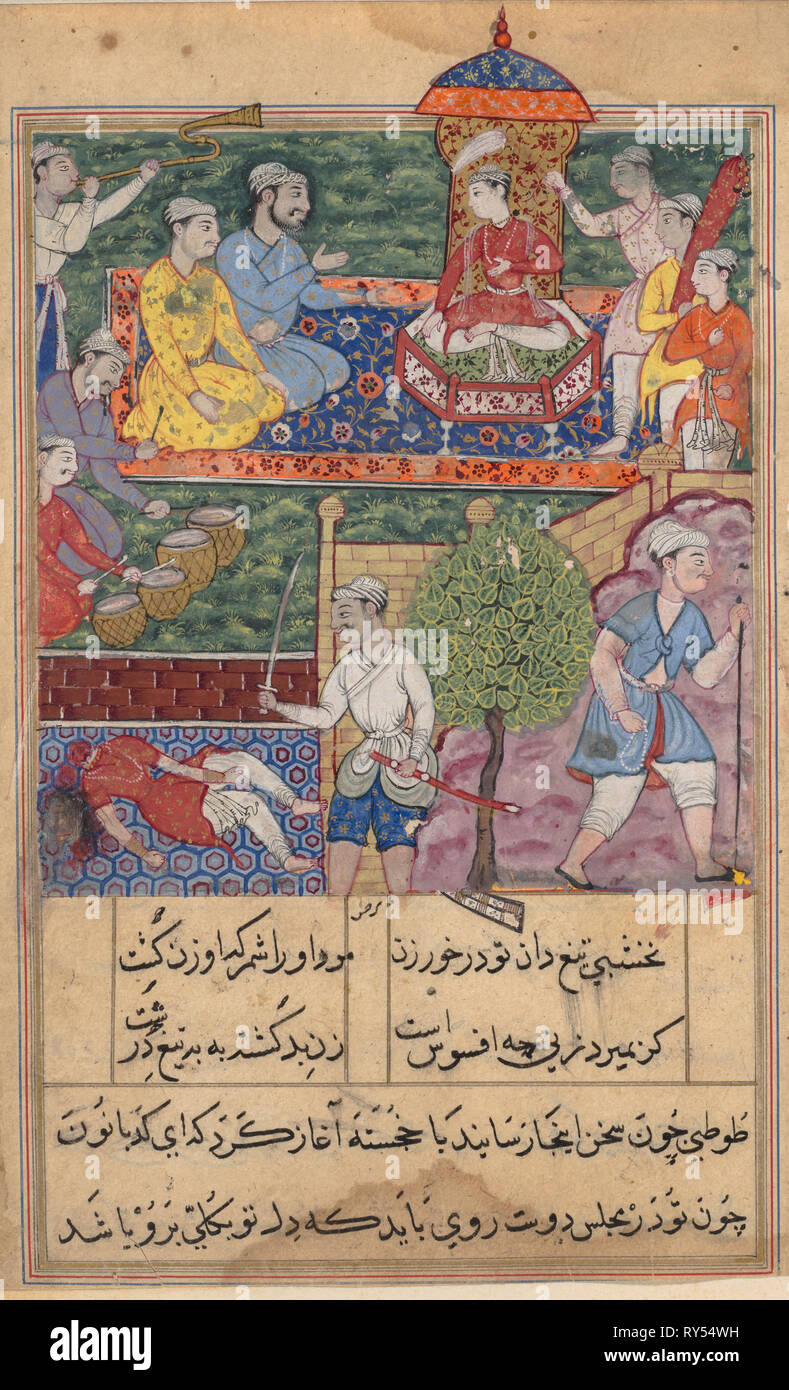 نخشبي تيغ دان تو در خور زن
مرد او را شمر كه او زن كشت
كر بميرد زني چه افسوس است
زن بد كشته به بد تيغ درشت
طوطي چون سخن اينجا رسانيد با خجسته آغاز كرد كه اي كدبانو
چون تو در مجلس دوست روي بايد كه دل تو بكلي برو باشد
alamy
a
Image ID: RY54WH
www.alamy.com